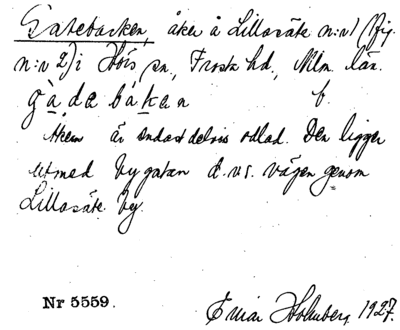 Gatebacken, åker å Lillasäte n:o 1 (fig.
n:o 2) i Hörs sn, Frosta hd., Mlm. län.
gàdabákan f.
Åkern är endast delvis odlad. Den ligger
utmed bygatan d.v.s. vägen genom
Lillasäte by.
Nr 5559.
Einar Holmberg 1927.